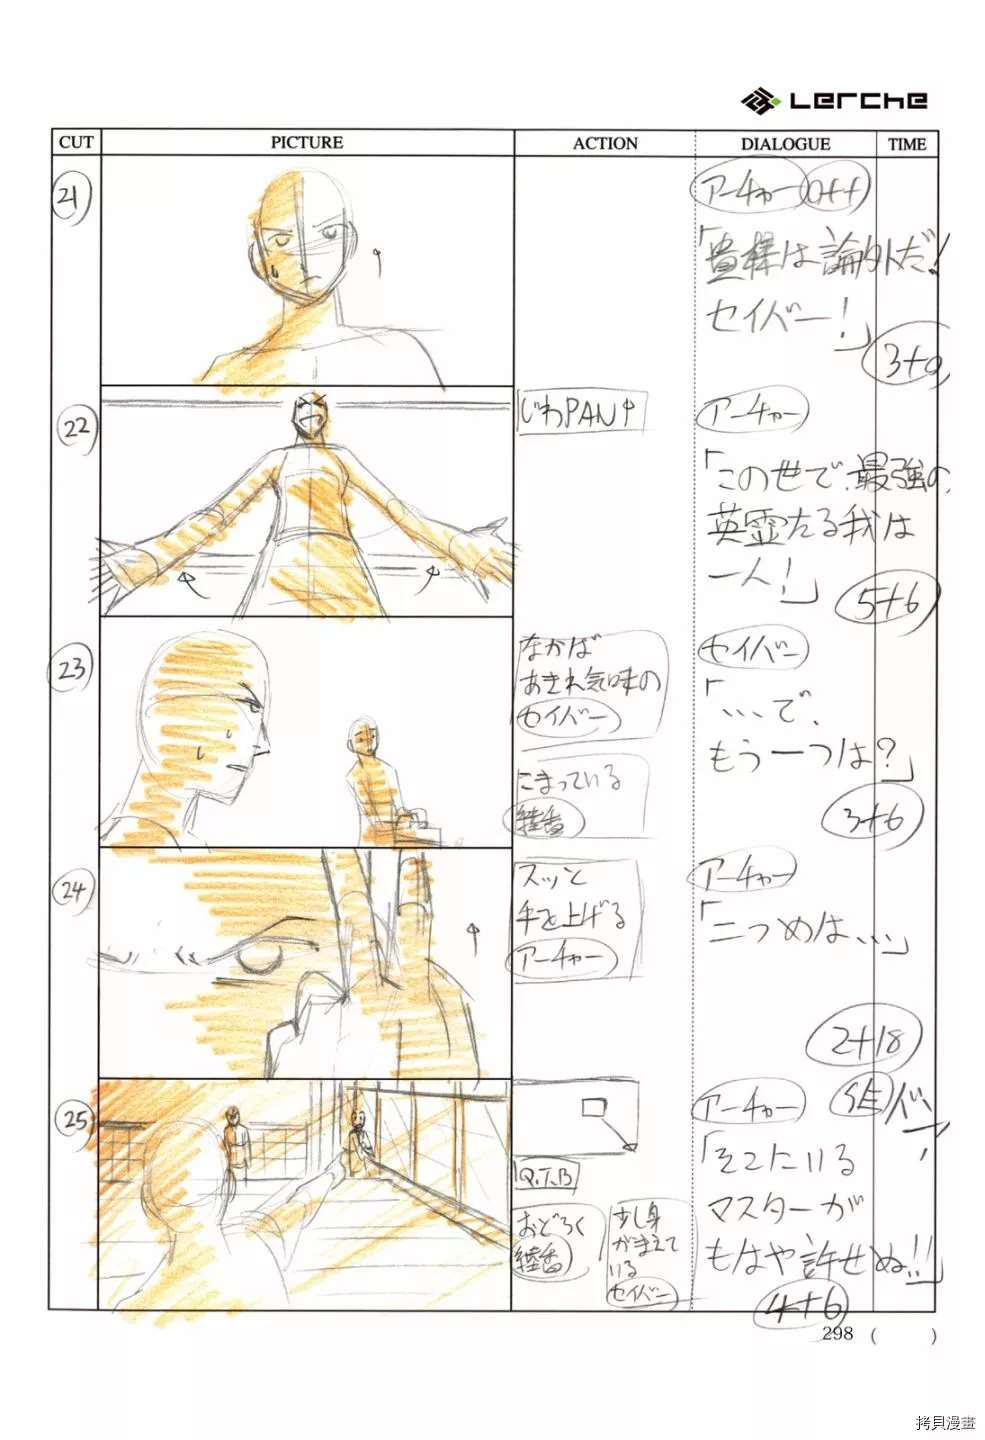 Lerche
CUT PICTURE ACTION DIALOGUE TIME
21
アーチャー off
「貴様は論外だ!
セイバー!」
3+0
22
じわPAN↑
アーチャー
「この世で、最強の、
英霊たる我は
一人!」
5+6
23
なかば
あきれ気味の
セイバー
こまっている
綾香
セイバー
「…で、
もう一つは?」
3+6
24
スッと
手を上げる
アーチャー
アーチャー
「二つめは…」
2+18
25
Q.T.B
おどろく
綾香
少し身
がまえて
いる
セイバー
アーチャー
「そこにいる
マスターが
もはや許せぬ!!」
4+6
298 ( )
拷貝漫畫